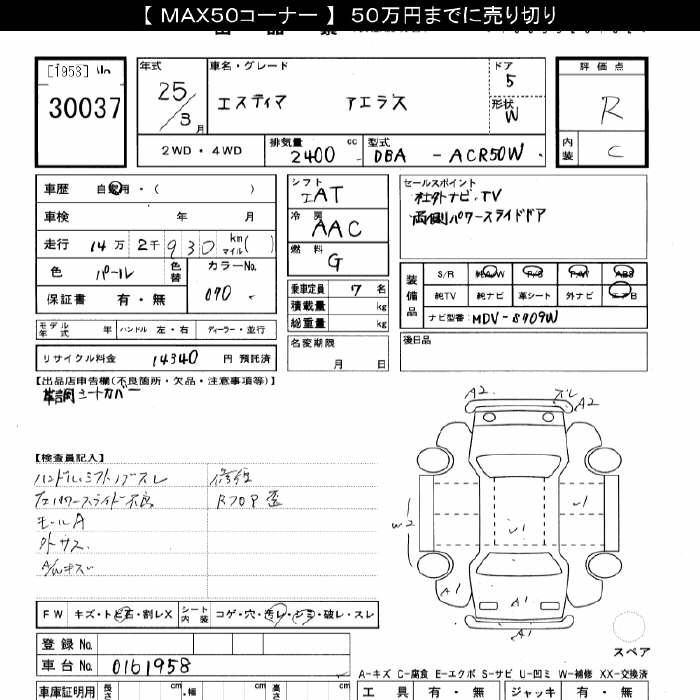 【 MAX50コーナー 】 50万円までに売り切り
[1958] 1lo
30037
年式 25/3月
車名・グレード エスティマ アエラス
ドア 5
形状 W
評価点 R
内装 C
2WD・4WD
排気量 2400 cc
型式 DBA - ACR50W
車歴 自家用・( )
車検 年 月
走行 14万2千930 km マイル( )
色 パール 色替
カラーNo. 070
保証書 有・無
シフト IAT
冷房 AAC
燃料 G
乗車定員 7 名
積載量 kg
総重量 kg
名変期限 月 日
セールスポイント
社外ナビ・TV
両側パワースライドドア
装備品
S/R 純A/W P/S P/W ABS
純TV 純ナビ 革シート 外ナビ エアB
ナビ型番 MDV-S709W
モデル年式 年 ハンドル 左・右 ディーラー・並行
リサイクル料金 14340 円 預託済
後日品
【出品店申告欄(不良箇所・欠品・注意事項等)】
革調シートカバー
【検査員記入】
ハンドル、シフトノブスレ
左パワースライド不良
モールA
外サス
A/Wキズ
修復
RフロP歪
A2
ズレ
A2
W2
U1
U1
A1
A1
A1
A1
スペア
FW キズ・トビ石・割レX
シート内装 コゲ・穴・汚レ・シミ・破レ・スレ
登録 No.
車台 No. 0161958
A-キズ C-腐食 E-エクボ S-サビ U-凹ミ W-補修 XX-交換済
車庫証明用 長さ cm 幅 cm 高さ cm
工具 有・無 ジャッキ 有・無